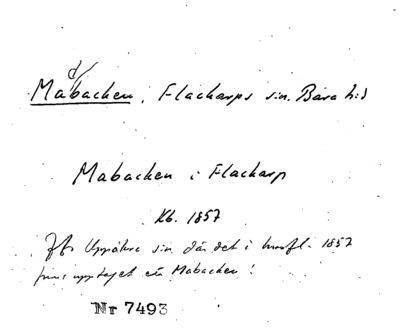 d/
Mabacken, Flackarps sn. Bara hd
Mabacken i Flackarp
Kb. 1857
Jfr Uppåkra sn där det i husfl. 1857
finns upptaget ett Mabacken!
Nr 7493